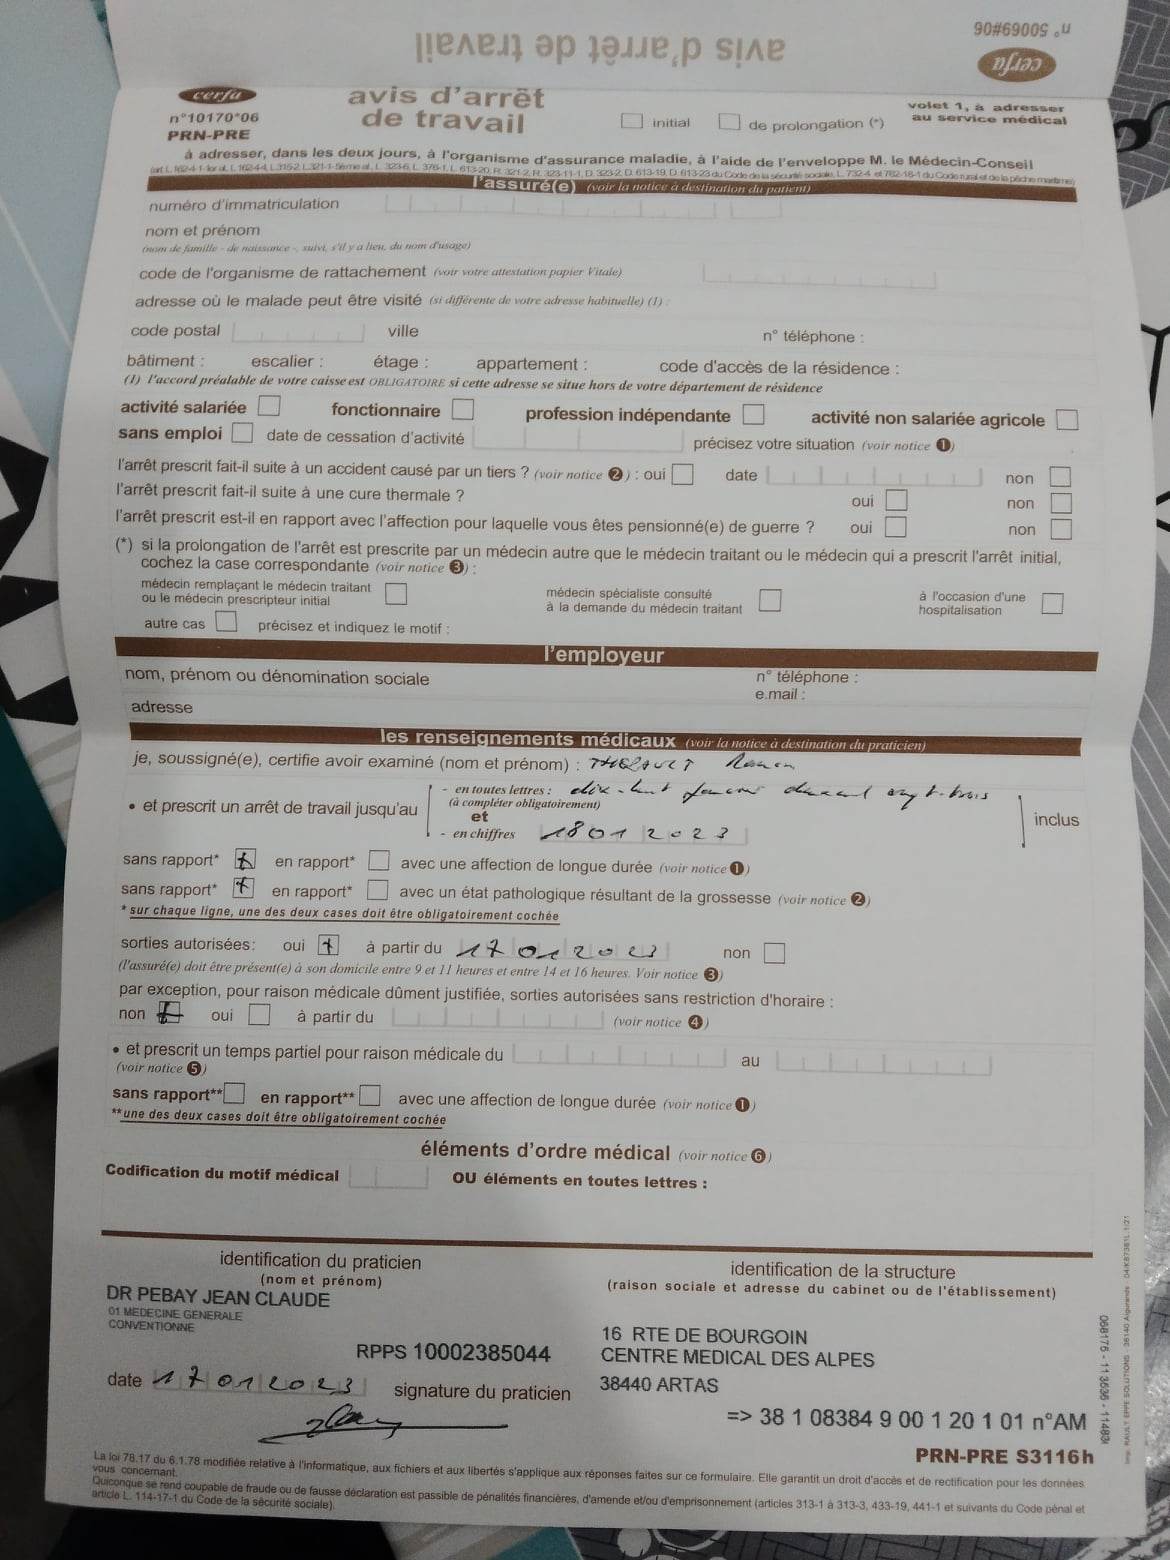 n° 50069#06
cerfa
avis d'arrêt de travail
cerfa
n°10170*06
PRN-PRE
avis d'arrêt
de travail
initial
de prolongation (*)
volet 1, à adresser
au service médical
à adresser, dans les deux jours, à l'organisme d'assurance maladie, à l'aide de l'enveloppe M. le Médecin-Conseil
l'assuré(e) (voir la notice à destination du patient)
numéro d'immatriculation
nom et prénom
(nom de famille - de naissance -, suivi, s'il y a lieu, du nom d'usage)
code de l'organisme de rattachement (voir votre attestation papier Vitale)
adresse où le malade peut être visité (si différente de votre adresse habituelle) (1) :
code postal ville n° téléphone :
bâtiment : escalier : étage : appartement : code d'accès de la résidence :
(1) l'accord préalable de votre caisse est OBLIGATOIRE si cette adresse se situe hors de votre département de résidence
activité salariée fonctionnaire profession indépendante activité non salariée agricole
sans emploi date de cessation d'activité précisez votre situation (voir notice 1)
l'arrêt prescrit fait-il suite à un accident causé par un tiers ? (voir notice 2) : oui date non
l'arrêt prescrit fait-il suite à une cure thermale ? oui non
l'arrêt prescrit est-il en rapport avec l'affection pour laquelle vous êtes pensionné(e) de guerre ? oui non
(*) si la prolongation de l'arrêt est prescrite par un médecin autre que le médecin traitant ou le médecin qui a prescrit l'arrêt initial,
cochez la case correspondante (voir notice 3) :
médecin remplaçant le médecin traitant
ou le médecin prescripteur initial
médecin spécialiste consulté
à la demande du médecin traitant
à l'occasion d'une
hospitalisation
autre cas précisez et indiquez le motif :
l'employeur
nom, prénom ou dénomination sociale n° téléphone :
e.mail :
adresse
les renseignements médicaux (voir la notice à destination du praticien)
je, soussigné(e), certifie avoir examiné (nom et prénom) :
- en toutes lettres : dix-huit janvier deux mil vingt-trois
(à compléter obligatoirement)
• et prescrit un arrêt de travail jusqu'au et inclus
- en chiffres 18 01 2023
sans rapport* en rapport* avec une affection de longue durée (voir notice 1)
sans rapport* en rapport* avec un état pathologique résultant de la grossesse (voir notice 2)
* sur chaque ligne, une des deux cases doit être obligatoirement cochée
sorties autorisées: oui à partir du 17 01 2023 non
(l'assuré(e) doit être présent(e) à son domicile entre 9 et 11 heures et entre 14 et 16 heures. Voir notice 3)
par exception, pour raison médicale dûment justifiée, sorties autorisées sans restriction d'horaire :
non oui à partir du (voir notice 4)
• et prescrit un temps partiel pour raison médicale du au
(voir notice 5)
sans rapport** en rapport** avec une affection de longue durée (voir notice 1)
**une des deux cases doit être obligatoirement cochée
éléments d'ordre médical (voir notice 6)
Codification du motif médical OU éléments en toutes lettres :
identification du praticien
(nom et prénom)
identification de la structure
(raison sociale et adresse du cabinet ou de l'établissement)
DR PEBAY JEAN CLAUDE
01 MEDECINE GENERALE
CONVENTIONNE
16 RTE DE BOURGOIN
RPPS 10002385044
CENTRE MEDICAL DES ALPES
date 17 01 2023 signature du praticien
38440 ARTAS
=> 38 1 08384 9 00 1 20 1 01 n°AM
PRN-PRE S3116h
La loi 78.17 du 6.1.78 modifiée relative à l'informatique, aux fichiers et aux libertés s'applique aux réponses faites sur ce formulaire. Elle garantit un droit d'accès et de rectification pour les données
vous concernant.
Quiconque se rend coupable de fraude ou de fausse déclaration est passible de pénalités financières, d'amende et/ou d'emprisonnement (articles 313-1 à 313-3, 433-19, 441-1 et suivants du Code pénal et
article L. 114-17-1 du Code de la sécurité sociale).